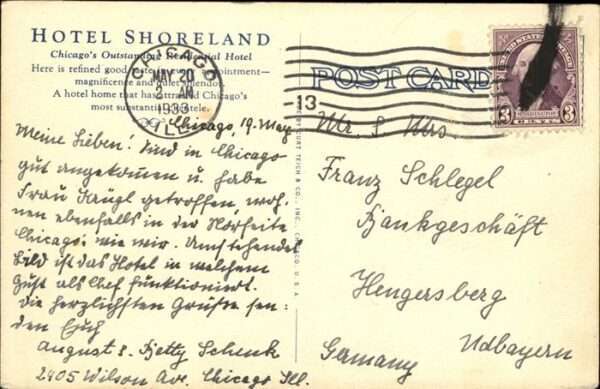 HOTEL SHORELAND
Chicago's Outstanding Residential Hotel
Here is refined good
magnificence and quiet splendor.
A hotel home that has attracted Chicago's
most substantial clientele.
CHICAGO
MAY 20
2 AM
1933
ILL.
13
POST CARD
UNITED STATES POSTAGE
WASHINGTON
3 CENTS 3
BY CURT TEICH & CO., INC., CHICAGO, U.S.A.
Chicago, 19. May
Meine Lieben! Sind in Chicago
gut angekommen u. habe
Frau getroffen woh-
nen ebenfalls in der Nordseite
Chicago, wie wir. Anstehendes
Bild ist das Hotel in welchem
Gust als Chef funktioniert.
Die herzlichsten Grüße sen:
den Euch
August & Betty Schenk
2405 Wilson Ave. Chicago Ill.
Mr. & Mrs.
Franz Schlegel
Bankgeschäft
Hengersberg
Ndbayern
Germany